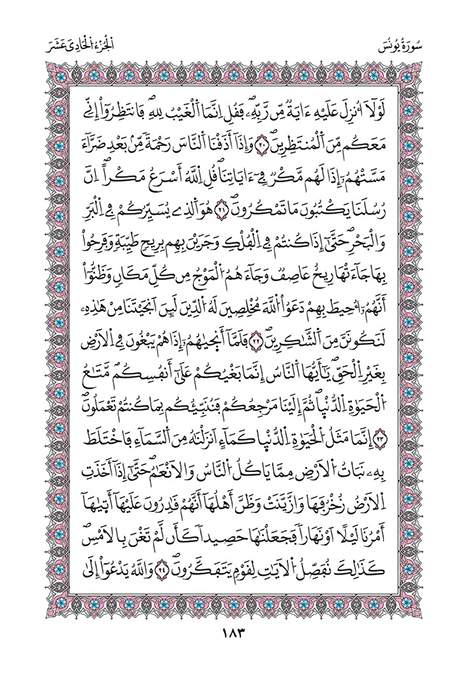 سُورَةُ يُونُسَ
الجُزْءُ الحَادِي عَشَر
لَوْلَا أُنزِلَ عَلَيْهِ ءَايَةٌ مِّن رَّبِّهِۦ فَقُلِ اِنَّمَا اَلْغَيْبُ لِلهِ فَانتَظِرُوٓاْ إِنِّے
مَعَكُم مِّنَ اَلْمُنتَظِرِينَ ٢٠ وَإِذَآ أَذَقْنَا اَلنَّاسَ رَحْمَةً مِّنۢ بَعْدِ ضَرَّآءَ
مَسَّتْهُمُۥٓ إِذَا لَهُم مَّكْرٌ فِےٓ ءَايَاتِنَا قُلِ اِللَّهُ أَسْرَعُ مَكْراً اِنَّ
رُسُلَنَا يَكْتُبُونَ مَا تَمْكُرُونَ ٢١ هُوَ اَلذِے يُسَيِّرُكُمْ فِے اِلْبَرِّ
وَالْبَحْرِ حَتَّىٰٓ إِذَا كُنتُمْ فِے اِلْفُلْكِ وَجَرَيْنَ بِهِم بِرِيحٍ طَيِّبَةٍ وَفَرِحُواْ
بِهَا جَآءَتْهَا رِيحٌ عَاصِفٌ وَجَآءَهُمُ اَلْمَوْجُ مِن كُلِّ مَكَانٍ وَظَنُّوٓاْ
أَنَّهُمُۥٓ أُحِيطَ بِهِمْ دَعَوُاْ اَللَّهَ مُخْلِصِينَ لَهُ اَلدِّينَ لَئِنَ اَنجَيْتَنَا مِنْ هَٰذِهِۦ
لَنَكُونَنَّ مِنَ اَلشَّاكِرِينَ ٢٢ فَلَمَّآ أَنجَىٰهُمُۥٓ إِذَا هُمْ يَبْغُونَ فِے اِلْأَرْضِ
بِغَيْرِ اِلْحَقِّ يَٰٓأَيُّهَا اَلنَّاسُ إِنَّمَا بَغْيُكُمْ عَلَىٰٓ أَنفُسِكُم مَّتَٰعُ
اَلْحَيَوٰةِ اِلدُّنْيَا ثُمَّ إِلَيْنَا مَرْجِعُكُمْ فَنُنَبِّئُكُم بِمَا كُنتُمْ تَعْمَلُونَ
٢٣ إِنَّمَا مَثَلُ اُلْحَيَوٰةِ اِلدُّنْيَا كَمَآءٍ اَنزَلْنَٰهُ مِنَ اَلسَّمَآءِ فَاخْتَلَطَ
بِهِۦ نَبَاتُ اُلْأَرْضِ مِمَّا يَاكُلُ اُلنَّاسُ وَالْأَنْعَٰمُ حَتَّىٰٓ إِذَآ أَخَذَتِ
اِلْأَرْضُ زُخْرُفَهَا وَازَّيَّنَتْ وَظَنَّ أَهْلُهَآ أَنَّهُمْ قَٰدِرُونَ عَلَيْهَآ أَتَىٰهَآ
أَمْرُنَا لَيْلاً اَوْ نَهَاراً فَجَعَلْنَٰهَا حَصِيداً كَأَن لَّمْ تَغْنَ بِالْأَمْسِ
كَذَٰلِكَ نُفَصِّلُ اُلْأٓيَٰتِ لِقَوْمٍ يَتَفَكَّرُونَ ٢٤ وَاللَّهُ يَدْعُوٓاْ إِلَىٰ
١٨٣